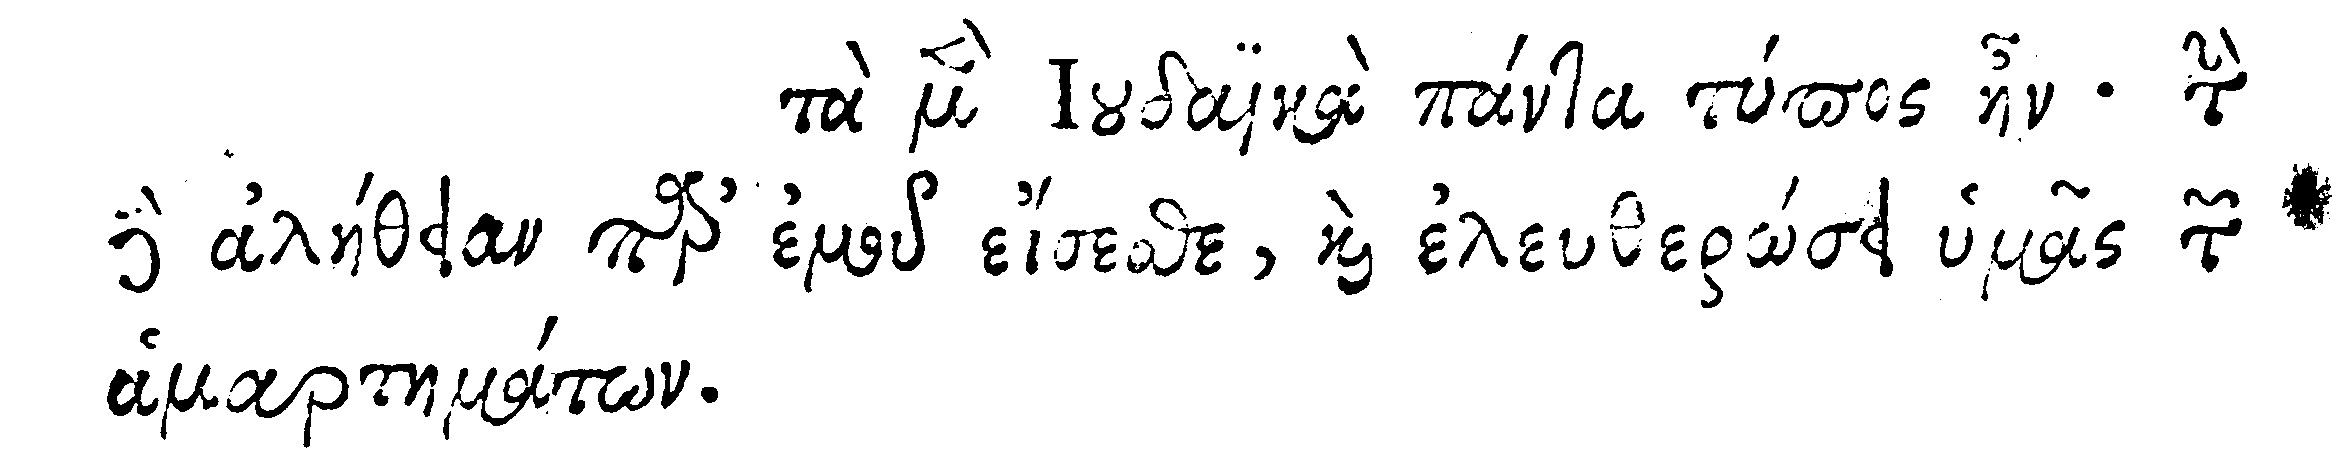 τὰ μὲν Ιουδαϊκὰ πάντα τύπος ἦν· τὴν
δὲ ἀλήθειαν παρ' ἐμοῦ εἴσεσθε, καὶ ἐλευθερώσει ὑμᾶς τῶν
ἁμαρτημάτων.